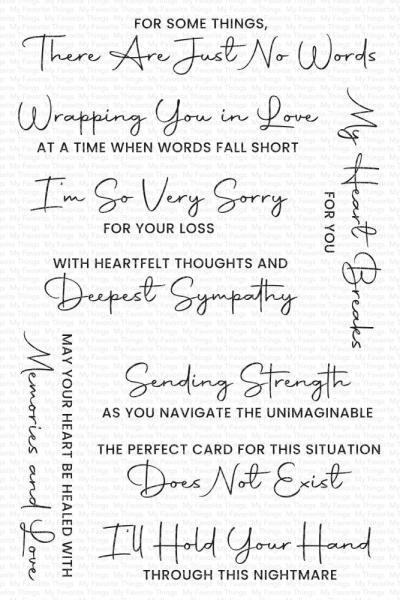 FOR SOME THINGS,
There Are Just No Words
Wrapping You in Love
AT A TIME WHEN WORDS FALL SHORT
My Heart Breaks
FOR YOU
I'm So Very Sorry
FOR YOUR LOSS
WITH HEARTFELT THOUGHTS AND
Deepest Sympathy
MAY YOUR HEART BE HEALED WITH
Memories and Love
Sending Strength
AS YOU NAVIGATE THE UNIMAGINABLE
THE PERFECT CARD FOR THIS SITUATION
Does Not Exist
I'll Hold Your Hand
THROUGH THIS NIGHTMARE